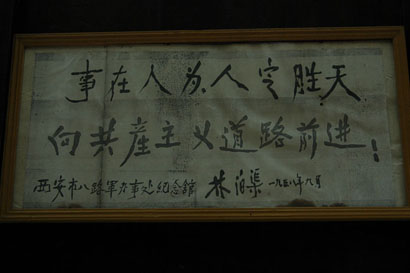 事在人为人定胜天
向共産主义道路前进！
西安市八路军办事处纪念館 林伯渠 一九五八年九月